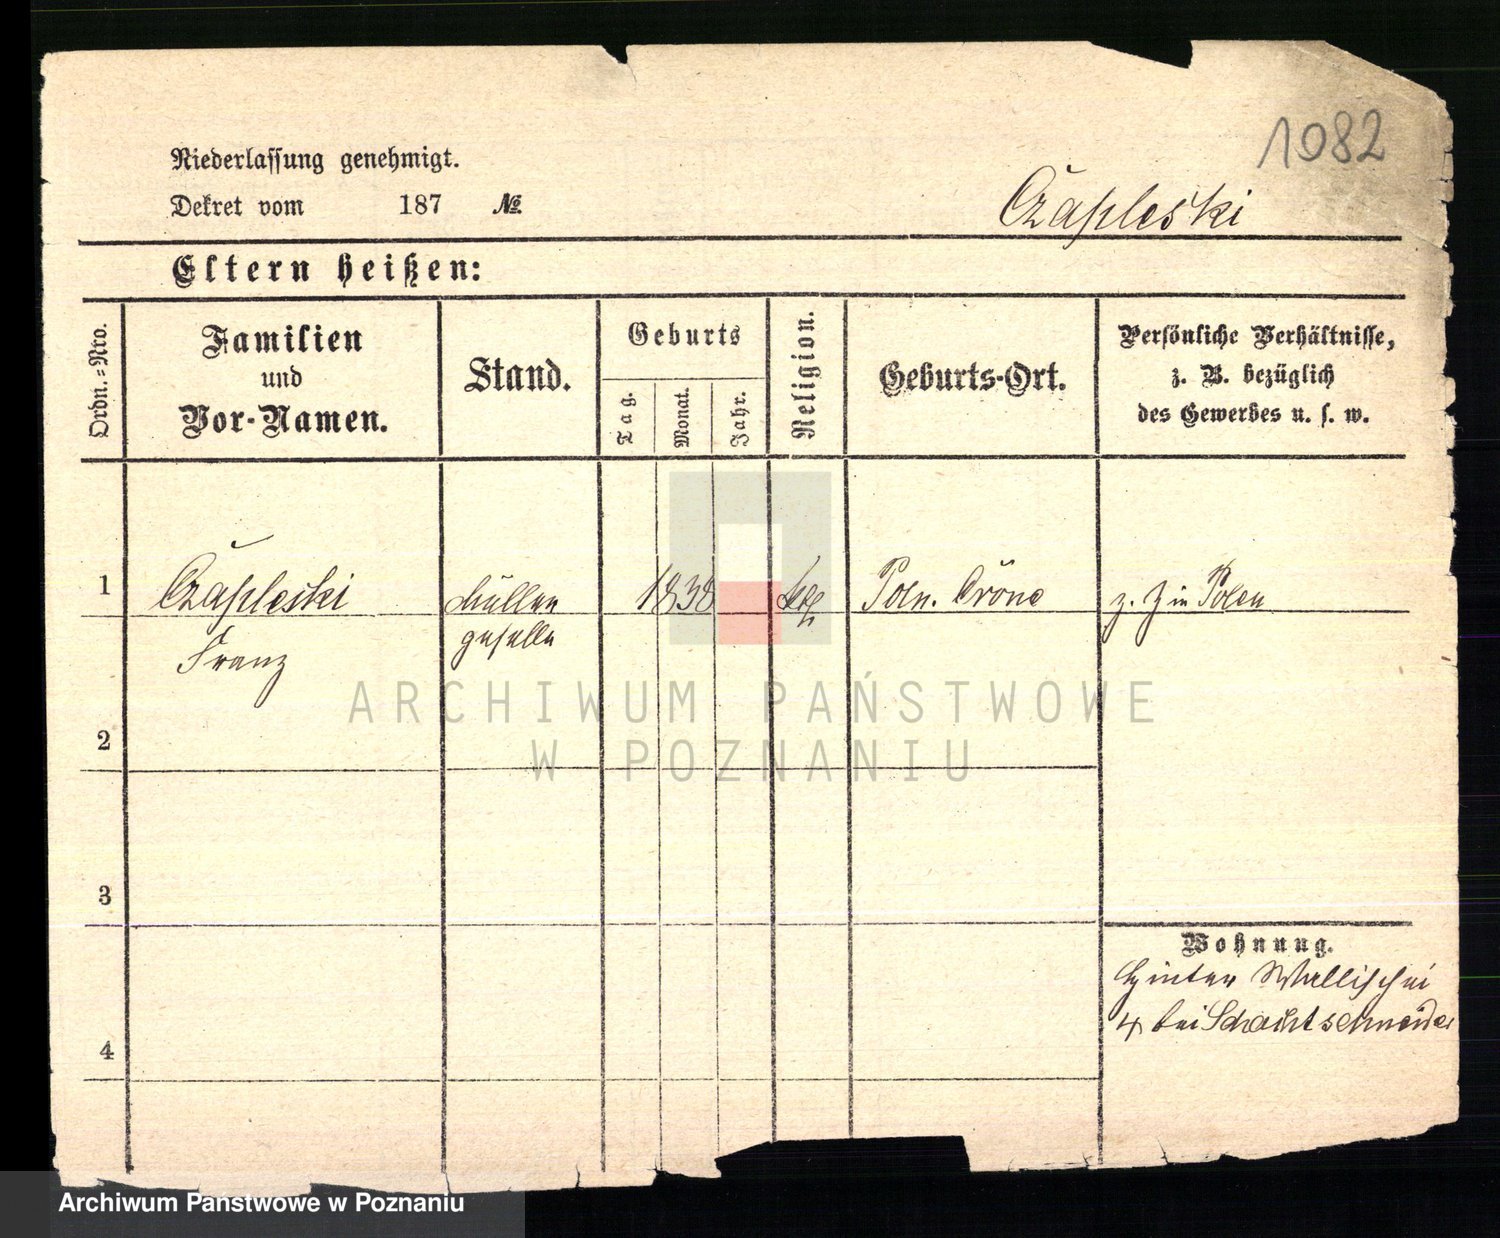 1082
Niederlassung genehmigt.
Dekret vom 187 №
Czapleski
Eltern heißen:
Ordn.-Nro.
Familien
und
Vor-Namen.
Stand.
Geburts
Tag.
Monat.
Jahr.
Religion.
Geburts-Ort.
Persönliche Verhältnisse,
z. B. bezüglich
des Gewerbes u. s. w.
1 Czapleski Müller 1838 kth Poln. Cröne z. Z in Polen
Franz geselle
2
3
4
Wohnung.
Hinter Wallischei
4 bei Schachtschneider
ARCHIWUM PAŃSTWOWE
W POZNANIU
Archiwum Państwowe w Poznaniu